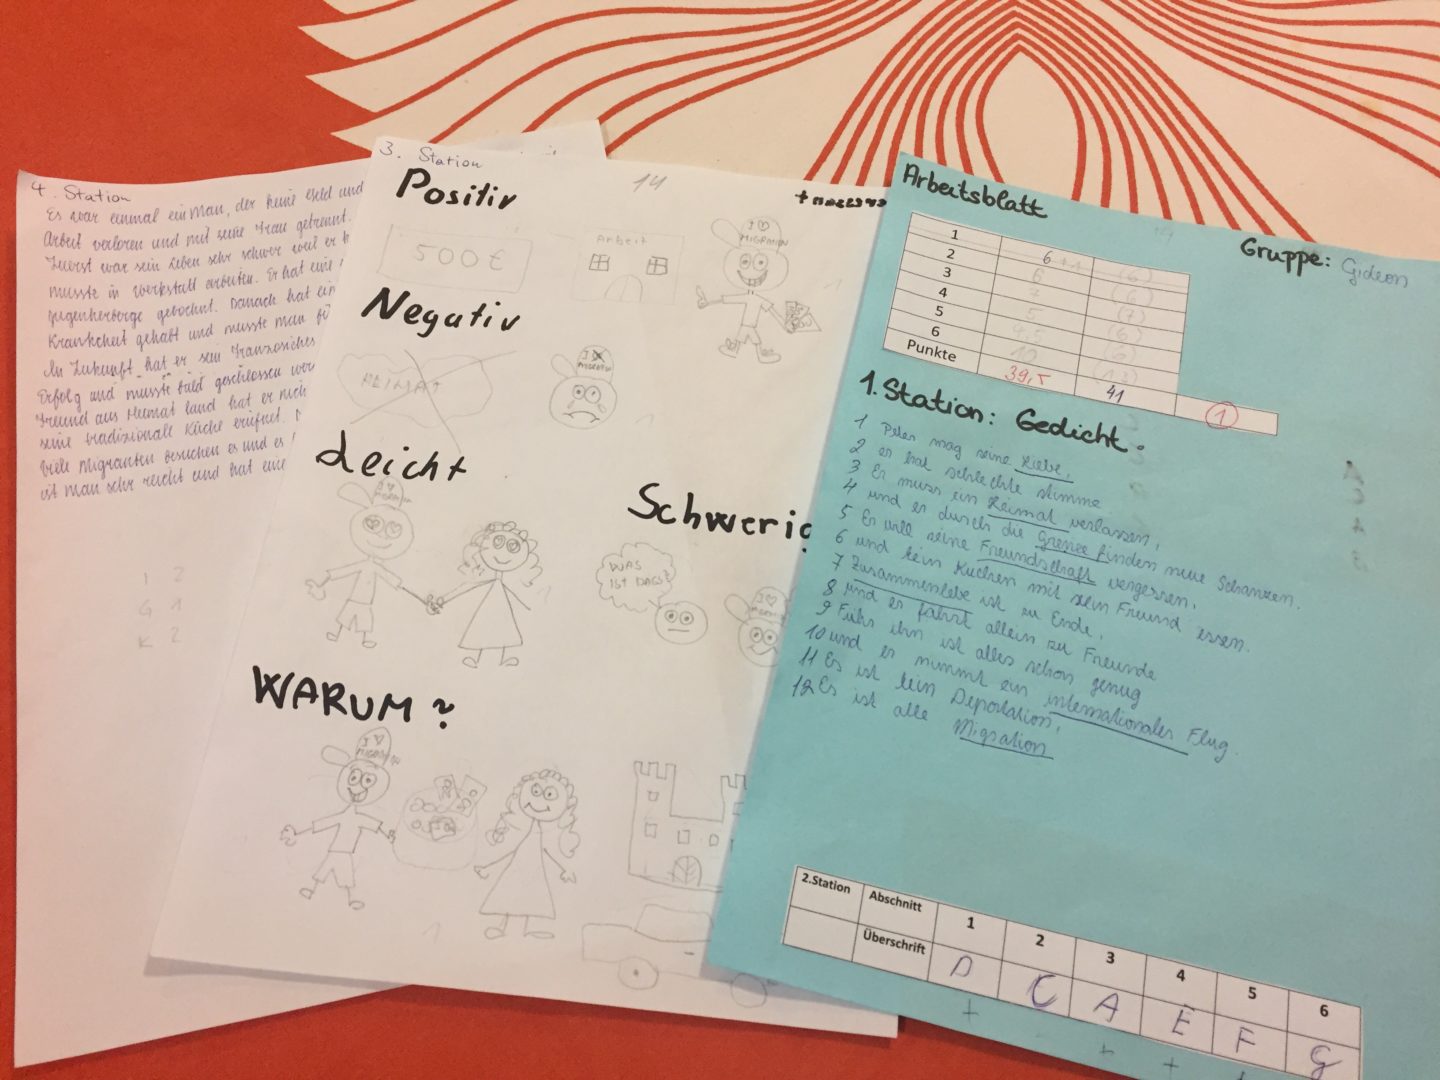 4. Station
Es war einmal ein Man, der keine Geld und
Arbeit verloren und mit seine Frau getrennt.
Zuerst war sein Leben sehr schwer weil er
musste in Werkstatt arbeiten. Er hat eine
jugenherberge gewohnt. Danach hat ein
Krankheit gehabt und musste man fü
In Zukunft hat er sein Französisches
Erfolg und musste bald geschlossen wer
Freund aus Heimat land hat er
seine tradizionale Küche eröfnet.
Viele Migranten besuchen es und es
ist man sehr reicht und hat eine
1 2
G 1
K 2
3. Station
14
Positiv
500€
Arbeit
I MIGRATION
Negativ
HEIMAT
I MIGRATION
Leicht
Schwerig
WAS
IST DAS?
WARUM?
I MIGRATION
Arbeitsblatt
Gruppe: Gideon
1
2 6+1 (6)
3 6
4 7
5 5 (7)
6 4,5 (6)
Punkte
39,5 41 1
1. Station: Gedicht:
1 Peter mag seine Liebe,
2 er hat schlechte stimme
3 Er muss ein Heimat verlassen,
4 und er durch die Grenze finden neue Schanzen.
5 Er will seine Freundschaft vergessen,
6 und kein Kuchen mit sein Freund essen.
7 Zusammenlebe ist zu Ende,
8 und er fährt allein zu Freunde
9 Führ ihn ist alles schon genug
10 und er nimmt ein internationales Flug.
11 Es ist kein Deportation,
12 Es ist alle Migration
2.Station Abschnitt 1 2 3 4 5 6
Überschrift D C A E F G
+ + +